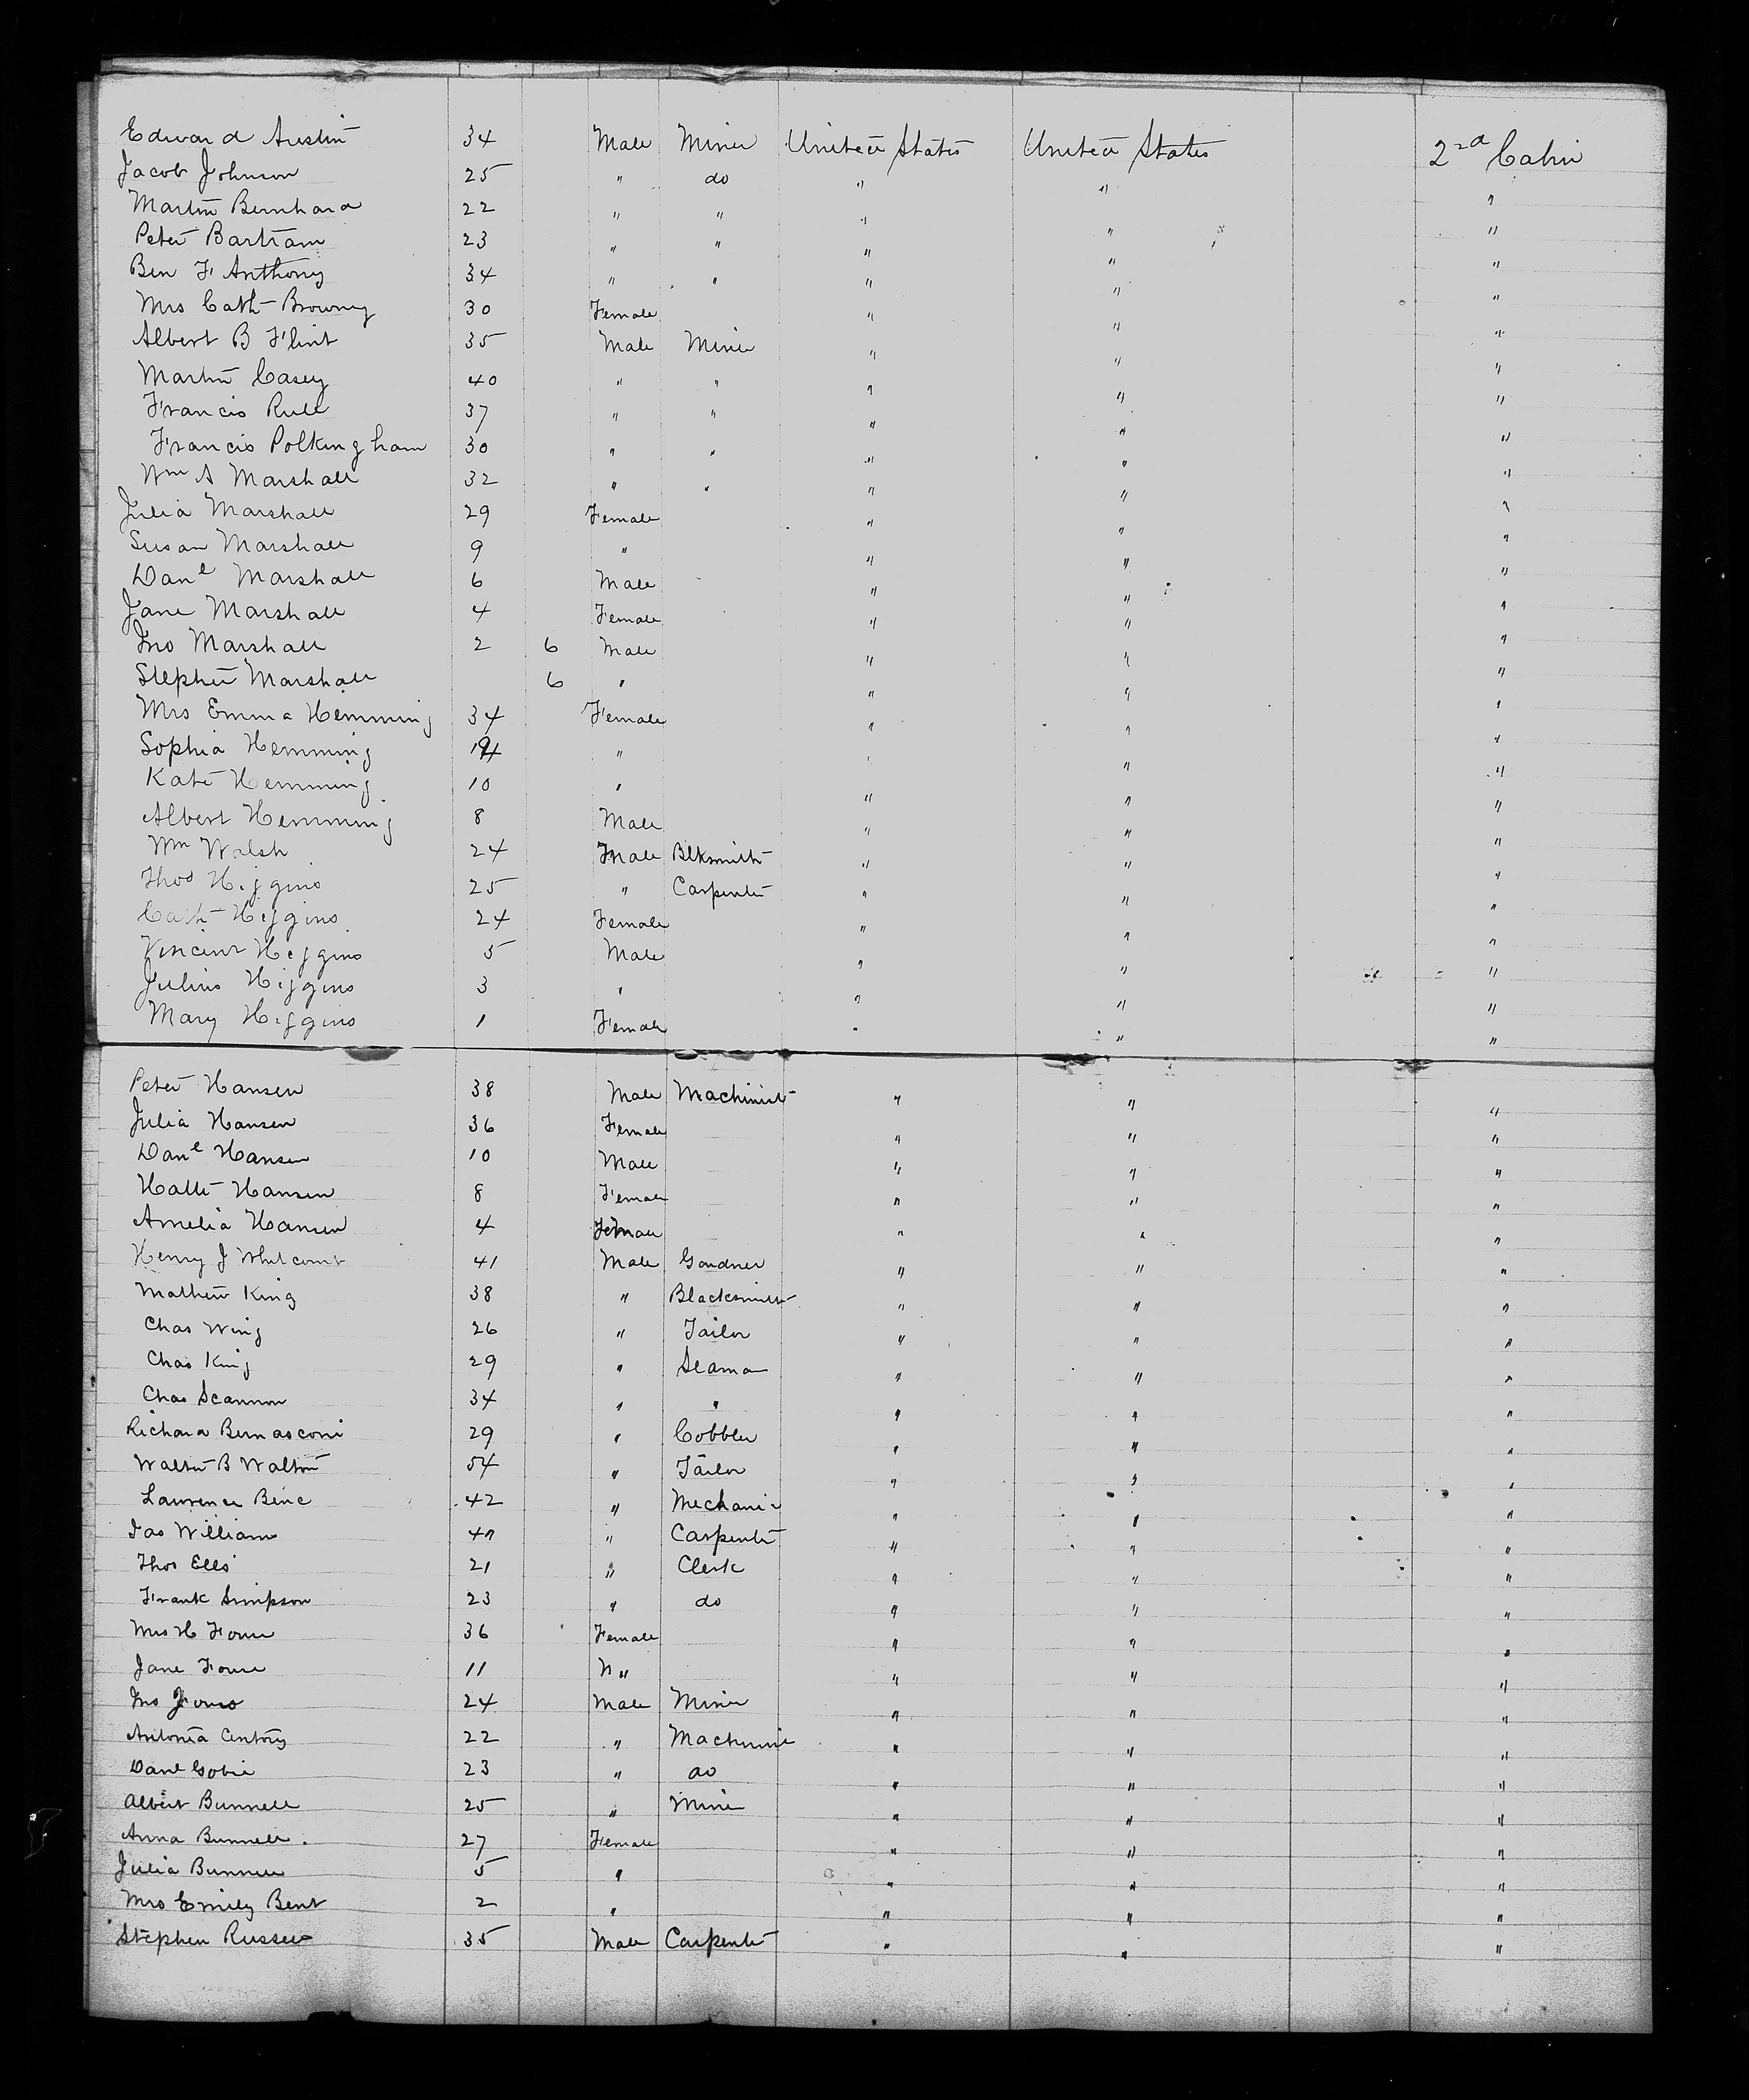 Edward Austin 34 Male Miner United States United States 2nd Cabin
Jacob Johnson 25 " do " " "
Martin Bernhard 22 " " " " "
Peter Bartram 23 " " " " "
Ben F Anthony 34 " " " " "
Mrs Cath Browny 30 Female " " "
Albert B Flint 35 Male Miner " " "
Martin Casey 40 " " " " "
Francis Rule 37 " " " " "
Francis Polkingham 30 " " " " "
Wm A Marshall 32 " " " " "
Julia Marshall 29 Female " " "
Susan Marshall 9 " " " "
Danl Marshall 6 Male " " "
Jane Marshall 4 Female " " "
Jno Marshall 2 6 Male " " "
Stephen Marshall 6 " " " "
Mrs Emma Hemming 34 Female " " "
Sophia Hemming " " " "
Kate Hemming 10 " " " "
Albert Hemming 8 Male " " "
Wm Walsh 24 Male Blksmith " " "
Thos Higgins 25 " Carpenter " " "
Cath Higgins 24 Female " " "
Vincent Higgins 5 Male " " "
Julius Higgins 3 " " " "
Mary Higgins 1 Female " " "
Peter Hansen 38 Male Machinist " " "
Julia Hansen 36 Female " " "
Danl Hansen 10 Male " " "
Hatti Hansen 8 Female " " "
Amelia Hansen 4 Female " " "
Henry J Whitcomb 41 Male Gardner " " "
Mathew King 38 " Blacksmith " " "
Chas Wing 26 " Tailor " " "
Chas King 29 " Seaman " " "
Chas Scannon 34 " " " " "
Richard Bernasconi 29 " Cobbler " " "
Walter B Walton 54 " Tailor " " "
Lawrence Bine 42 " Mechanic " " "
Jas William " Carpenter " " "
Thos Ells 21 " Clerk " " "
Frank Simpson 23 " do " " "
Mrs H 36 Female " " "
Jane 11 " " " "
Jno 24 Male Miner " " "
Antonia 22 " Machinist " " "
Danl Gobie 23 " do " " "
Albert Bunnell 25 " Miner " " "
Anna Bunnell 27 Female " " "
Julia Bunnell 5 " " " "
Mrs Emily Bent 2 " " " "
Stephen Russell 35 Male Carpenter " " "